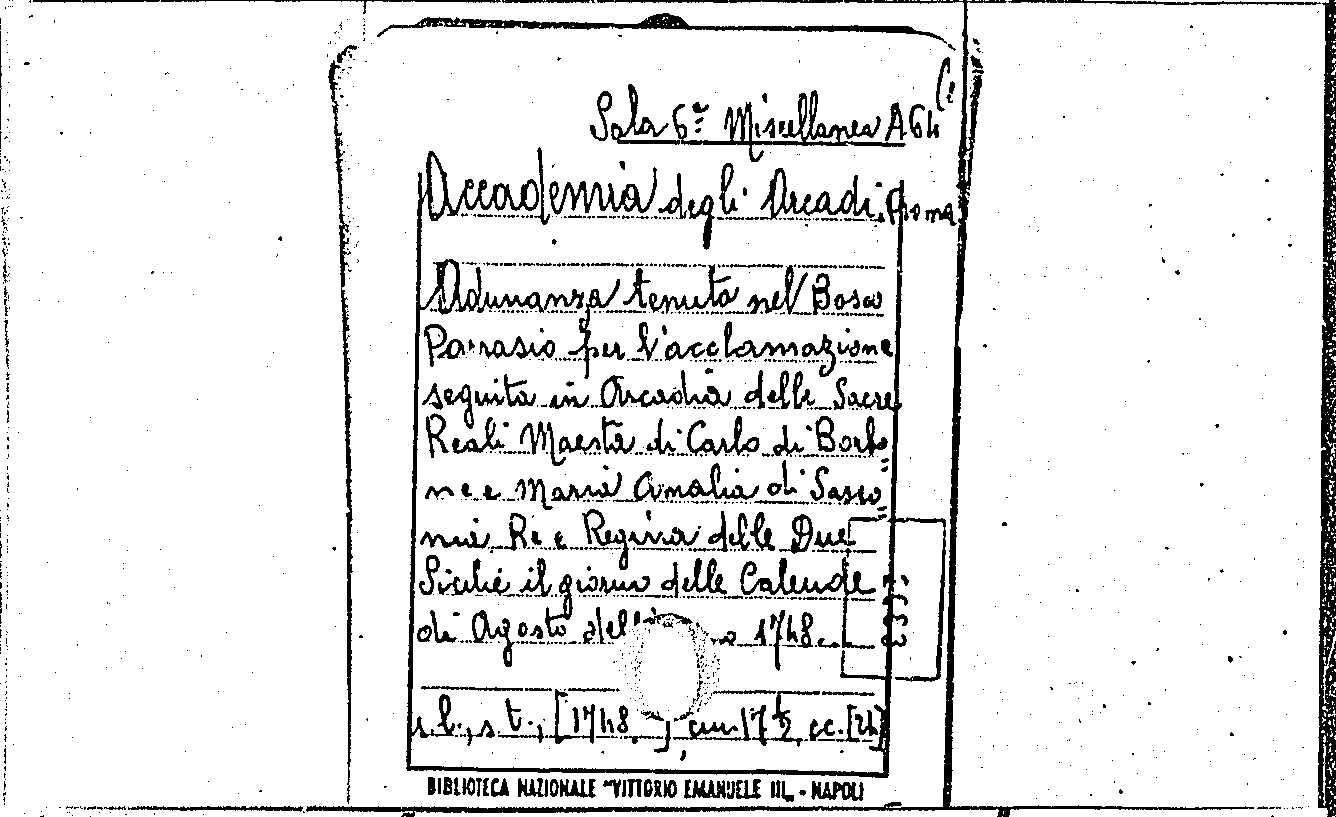 Sala 6ª Miscellanea A 64
(1
Accademia degli Arcadi. Roma
Adunanza tenuta nel Bosco
Parrasio per l'acclamazione
seguita in Arcadia delle Sacre
Reali Maestà di Carlo di Borbo=
ne e Maria Amalia di Sasso=
nia Re e Regina delle Due
Sicilie il giorno delle Calende
di Agosto dell' 1748
s.l., s.t., [1748 ], cm. 17 ½, cc. [24]
BIBLIOTECA NAZIONALE "VITTORIO EMANUELE III„ - NAPOLI